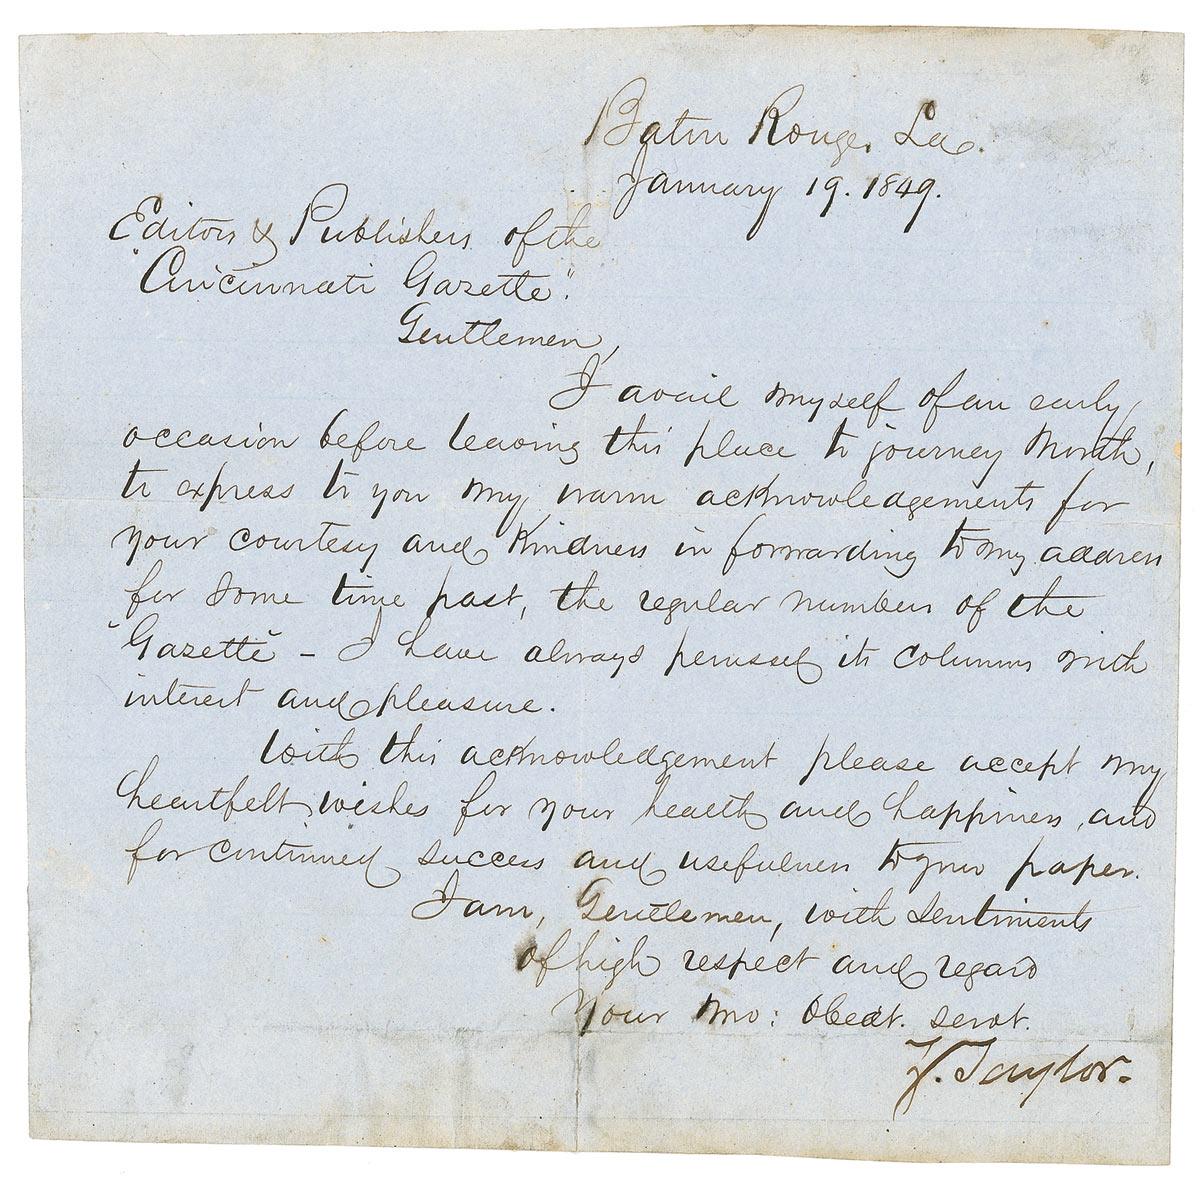 Baton Rouge, La.
January 19. 1849.
Editors & Publishers of the
"Cincinnati Gazette."
Gentlemen,
I avail myself of an early
occasion before leaving this place to journey North,
to express to you my warm acknowledgements for
your courtesy and kindness in forwarding to my address
for some time past, the regular numbers of the
"Gazette" - I have always perused its columns with
interest and pleasure.
With this acknowledgement please accept my
heartfelt wishes for your health and happiness, and
for continued success and usefulness to your paper.
I am, Gentlemen, with sentiments
of high respect and regard
Your Mo: Obedt. servt.
Z. Taylor.